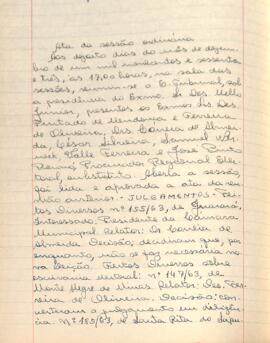 Ata da sessão ordinária
Aos dezoito dias do mês de dezem-
bro de um mil novecentos e sessenta
e três, às 13,00 horas, na sala das
sessões, reuniu-se o E. Tribunal, sob
a presidência do Exmo. Sr. Des. Mello
Junior, presentes os Exmos. Srs. Des.
Furtado de Mendonça e Ferreira
de Oliveira, Drs. Correia de Almei-
da, César Silveira, Samuel
Valle Ferreira e José Pinto
Procurador Regional Elei-
toral, substituto. Aberta a sessão,
foi lida e aprovada a ata da reu-
nião anterior. JULGAMENTOS: Fei-
tos Diversos nº 155/63, de Guarará.
Interessado: Presidente da Câmara
Municipal. Relator: Dr. Correia de
Almeida. Decisão: decidiram que, por
enquanto, não se faz necessária no-
va eleição. Feitos Diversos sobre
escrivania eleitoral: nº 147/63, de
Monte Alegre de Minas. Relator: Des. Fer-
reira de Oliveira. Decisão: con-
verteram o julgamento em diligên-
cia. Nº 185/63, de Santa Rita do Sapu-